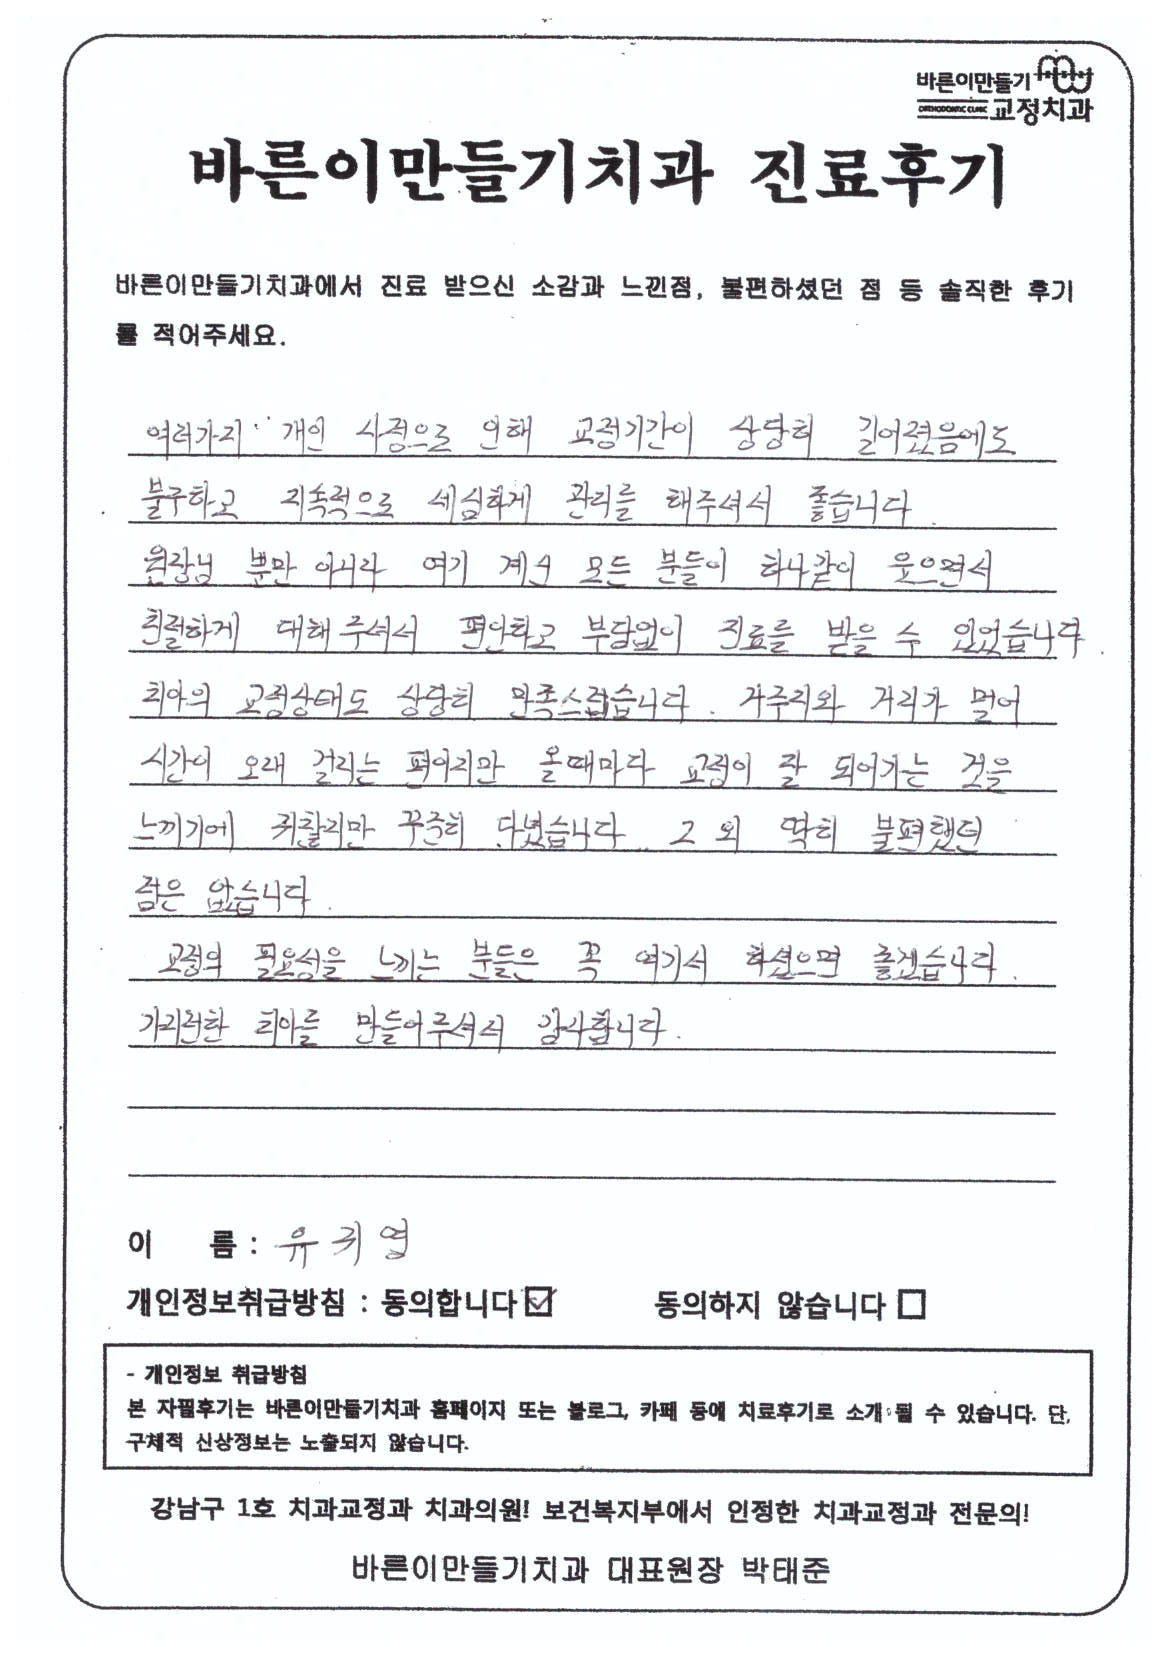 바른이만들기
ORTHODONTIC CLINIC 교정치과
바른이만들기치과 진료후기
바른이만들기치과에서 진료 받으신 소감과 느낀점, 불편하셨던 점 등 솔직한 후기
를 적어주세요.
여러가지 개인 사정으로 인해 교정기간이 상당히 길어졌음에도
불구하고 지속적으로 세심하게 관리를 해주셔서 좋습니다.
원장님 뿐만 아니라 여기 계신 모든 분들이 하나같이 웃으면서
친절하게 대해주셔서 편안하고 부담없이 진료를 받을 수 있었습니다.
치아의 교정상태도 상당히 만족스럽습니다. 거주지와 거리가 멀어
시간이 오래 걸리는 편이지만 올때마다 교정이 잘 되어가는 것을
느끼기에 귀찮지만 꾸준히 다녔습니다. 그 외 딱히 불편했던
점은 없습니다.
교정의 필요성을 느끼는 분들은 꼭 여기서 하셨으면 좋겠습니다.
가지런한 치아를 만들어주셔서 감사합니다.
이 름 : 유귀엽
개인정보취급방침 : 동의합니다 ☑ 동의하지 않습니다 □
- 개인정보 취급방침
본 자필후기는 바른이만들기치과 홈페이지 또는 블로그, 카페 등에 치료후기로 소개 될 수 있습니다. 단,
구체적 신상정보는 노출되지 않습니다.
강남구 1호 치과교정과 치과의원! 보건복지부에서 인정한 치과교정과 전문의!
바른이만들기치과 대표원장 박태준